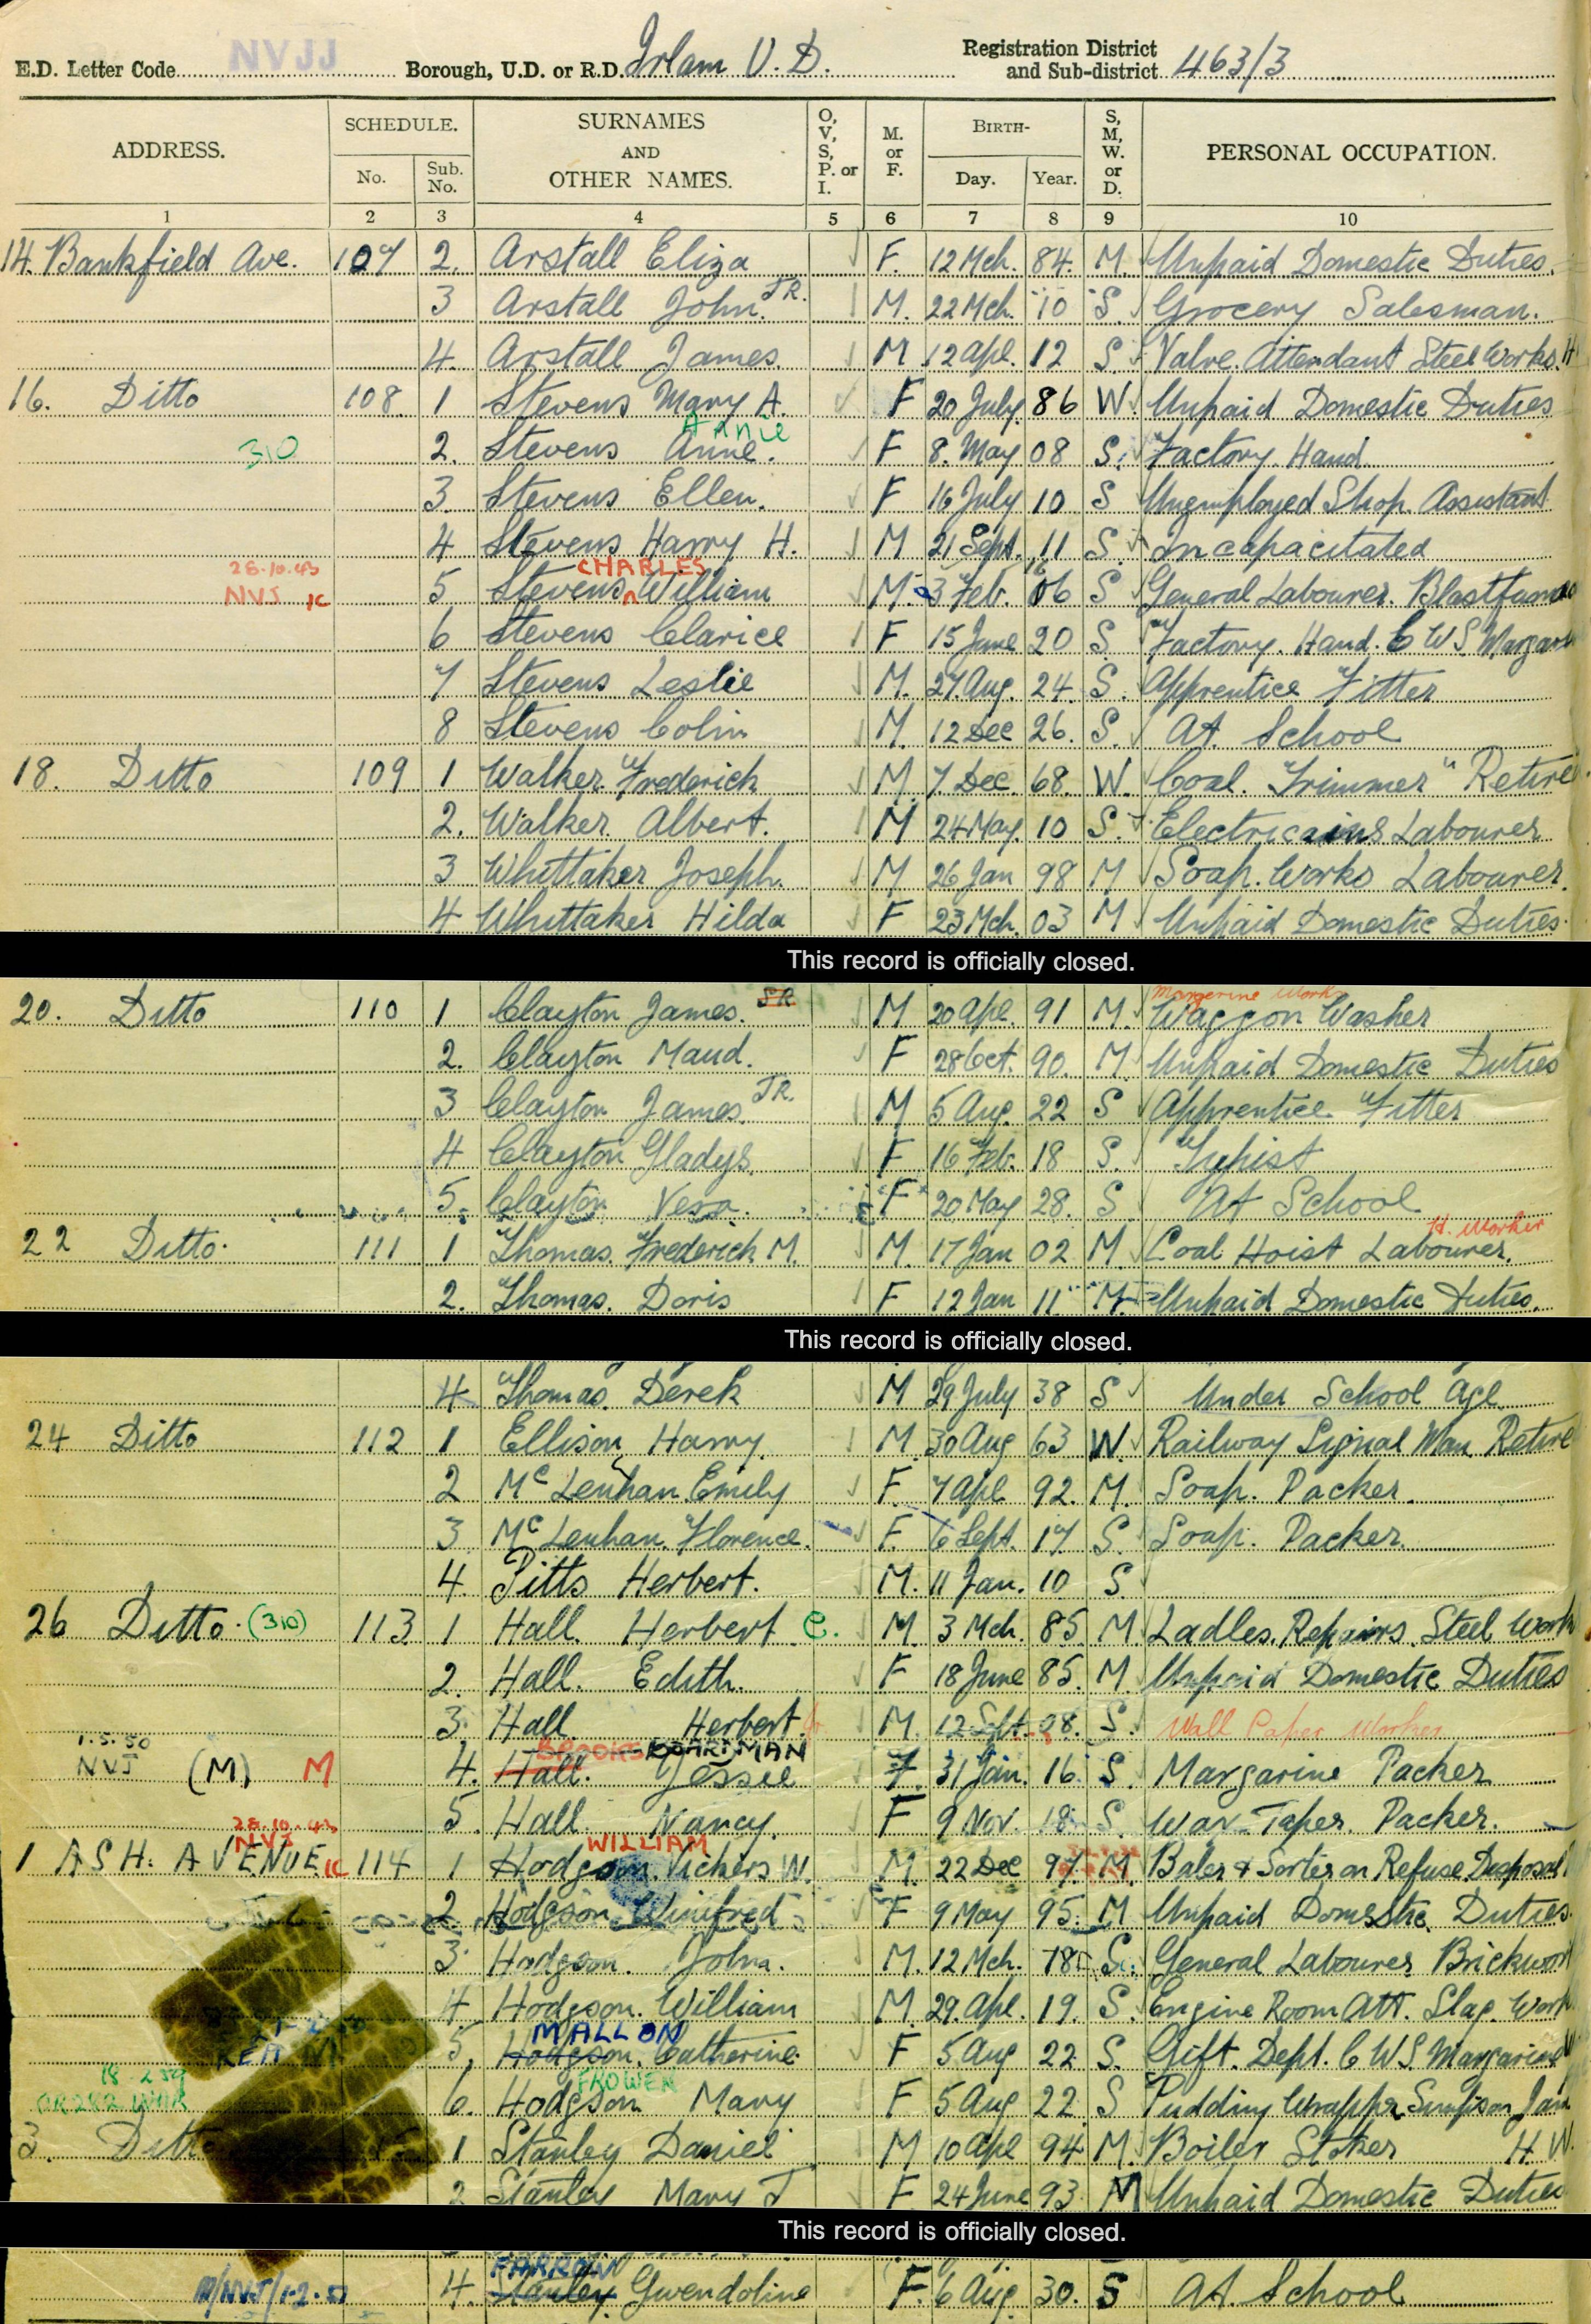 E.D. Letter Code NVJJ Borough, U.D. or R.D. Irlam U.D. Registration District and Sub-district 463/3
ADDRESS. SCHEDULE. No. Sub. No. SURNAMES AND OTHER NAMES. O, V, S, P. or I. M. or F. BIRTH- Day. Year. S, M, W. or D. PERSONAL OCCUPATION.
1 2 3 4 5 6 7 8 9 10
14. Bankfield Ave. 107 2. Arstall Eliza F. 12 Mch. 84. M. Unpaid Domestic Duties.
3 Arstall John. JR. M. 22 Mch. 10 S. Grocery Salesman.
4. Arstall James. M 12 Apl. 12 S Valve Attendant Steel Works. H
16. Ditto 108 1 Stevens Mary A. F 20 July 86 W. Unpaid Domestic Duties
Annie
310 2. Stevens Anne. F 8. May 08 S. Factory Hand
3. Stevens Ellen. F 16 July 10 S Unemployed Shop Assistant
4 Stevens Harry H. M 21 Sept. 11 S Incapacitated
28.10.43 CHARLES 16
NVJ IC 5 Stevens William M. 3 Feb. 06 S General Labourer. Blastfurnace
6 Stevens Clarice F 15 June 20 S. Factory. Hand. C W S Margar
7 Stevens Leslie M. 27. Aug. 24. S. Apprentice Fitter
8 Stevens Colin M. 12 Dec 26. S. At. School
18. Ditto 109 1 Walker Frederick M. 7. Dec. 68. W. Coal. Trimmer" Retire
2. Walker. Albert. M 24 May. 10 S. Electricains Labourer
3 Whittaker Joseph. M 26 Jan 98 M Soap. Works Labourer.
4 Whittaker Hilda F 23 Mch. 03 M Unpaid Domestic Duties.
This record is officially closed.
Margerine Work
20. Ditto 110 1 Clayton James. SR M 20 Apl. 91 M. Waggon Washer
2. Clayton Maud. F 28 Oct. 90. M. Unpaid Domestic Duties
3 Clayton James. JR. M 5 Aug. 22 S Apprentice Fitter
4 Clayton Gladys. F 16 Feb. 18 S. Typist
5. Clayton Vera. F 20 May 28. S At School
H. Worker
22 Ditto. 111 1 Thomas. Frederick M. M. 17 Jan 02 M. Coal Hoist Labourer.
2. Thomas. Doris F 12 Jan 11 M Unpaid Domestic Duties.
This record is officially closed.
4. Thomas. Derek M 29 July 38 S Under School Age
24 Ditto 112 1 Ellison Harry. M. 30 Aug 63 W. Railway Signal Man Retire
2 Mc Lenhan. Emily F. 7 Apl 92. M. Soap. Packer.
3. Mc Lenhan. Florence. F. 6 Sept. 17 S. Soap. Packer.
4. Pitts Herbert. M. 11 Jan. 10 S.
26 Ditto. (310) 113 1 Hall. Herbert C. M. 3 Mch. 85. M. Ladles. Repairs. Steel Work
2. Hall. Edith. F 18 June 85. M. Unpaid Domestic Duties
3. Hall Herbert. Jr M. 12 Sept. 08. S. Wall Paper Worker
1.5.50 BROOKS BOARDMAN
NVJ (M) M 4. Hall. Jessie F. 31 Jan. 16. S. Margarine Packer
5. Hall Nancy. F 9 Nov. 18 S. Wax Taper Packer.
28.10.43 NVJ WILLIAM
1 ASH. AVENUE IC 114 1 Hodgson. Vickers W. M. 22 Dec 97. M. Baler & Sorter on Refuse Disposal
2 Hodgson Winifred F 9 May 95. M Unpaid Domestic Duties.
3. Hodgson. John. M. 12 Mch. 78 S. General Labourer Brickwor
4. Hodgson. William M. 29. Apl. 19. S. Engine Room Att. Slag. Work
MALLON
5, Hodgson. Catherine. F 5 Aug 22. S. Gift. Dept. C W S. Margarine W
18.2.59 FROWEN
OR282 WHR 6. Hodgson Mary F 5 Aug 22. S Pudding Wrapper Simpson Jam
3. Ditto 1 Stanley Daniel M 10 Apl 94 M. Boiler Stoker H.W.
2 Stanley Mary J F 24 June 93. M Unpaid Domestic Duties
This record is officially closed.
FARROW
4. Stanley Gwendoline F. 6 Aug 30. S At. School